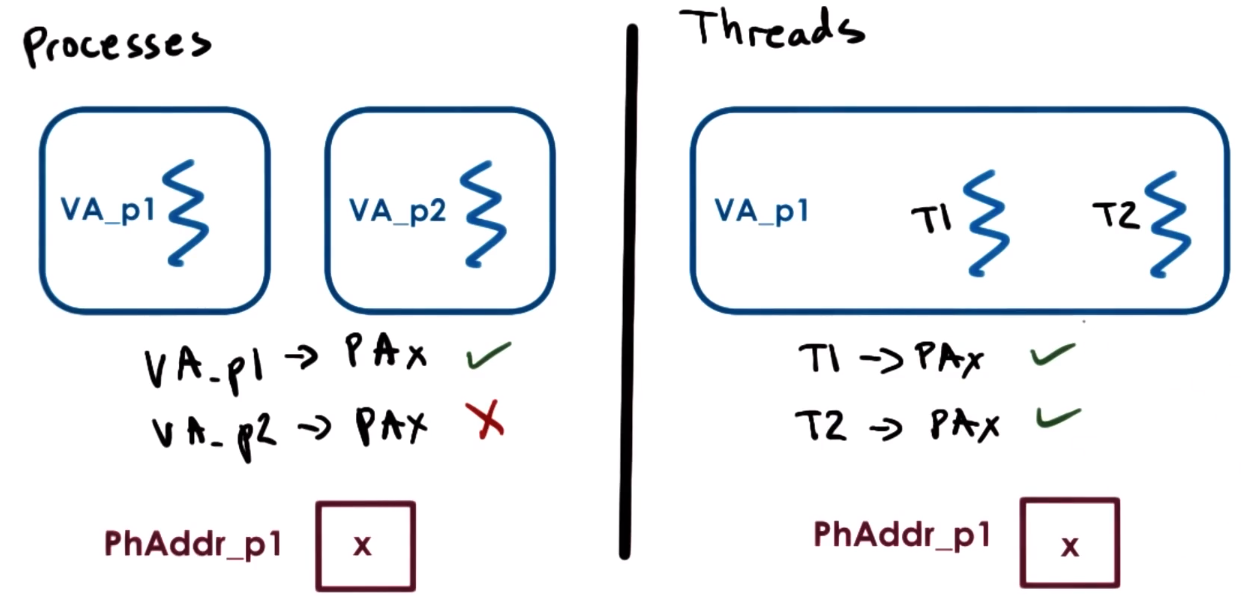 Processes
VA_p1
VA_p2
VA_p1 → PAx ✓
VA_p2 → PAx X
PhAddr_p1
x
Threads
VA_p1
T1
T2
T1 → PAx ✓
T2 → PAx ✓
PhAddr_p1
x